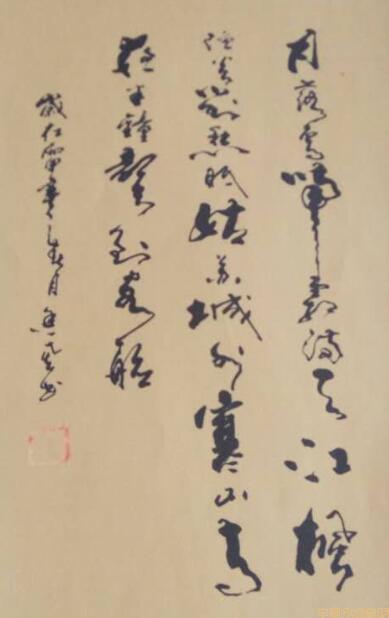 月落烏啼霜滿天江楓
漁火對愁眠姑蘇城外寒山寺
夜半鐘聲到客船
歲 月 书